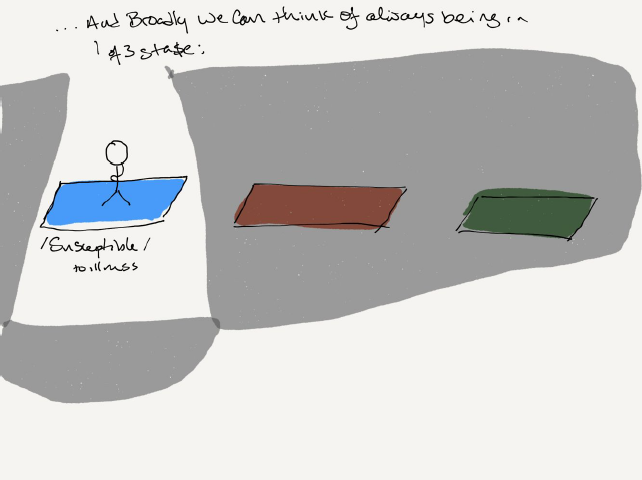 ... And Broadly we can think of always being in
1 of 3 stage:
/Susceptible/
to illness